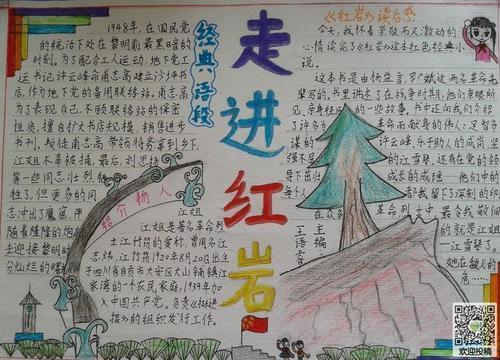 走进红岩
经典语段
1948年，在国民党
的统治下处在黎明前最黑暗的
时刻。为了配合工人运动，地下党工
运书记许云峰命甫志高建立沙坪书
店，作为地下党的备用联络站。甫志高
为了表现自己，不顾联络站的保密
性质，擅自扩大书店规模，销售进步
书刊，
江姐不幸被捕。最后，刘思扬
等一些同志壮烈牺
牲了，但更多的同
志冲出了魔窟，伴
随着隆隆的炮
去迎接黎明时
分灿烂的曙
人物介绍
江姐
江姐是著名革命烈
士江竹筠的爱称，曾用名江
志炜，江竹筠1920年8月20日出生于
四川省自贡市大安区大山铺镇江
家湾的一个农民家庭，1939年加
入中国共产党。负责《挺进
报》的组织发行工作。
《红岩》读后感
今天，我怀着崇敬而又激动的
心情读完了《红岩》这本红色经典小
说。
这本书是由杨益言、罗广斌这两名革命先
辈写的，书里讲述了在战争时期，他们亲眼所
见，亲身经历的一些故事。书中还向我们介绍
了许多为革命而献身的伟人：足智多
谋的许云峰，乐于助人的成岗，坚
强不屈的江雪琴，还有在党的领
导下茁壮成长的成瑶……他们中的
每个人都给我留下了深刻的印
象
在众多革命烈士中，最令我敬佩
的就是江姐
—江雪琴。
她在敌人的
主编
王语
欢迎投稿